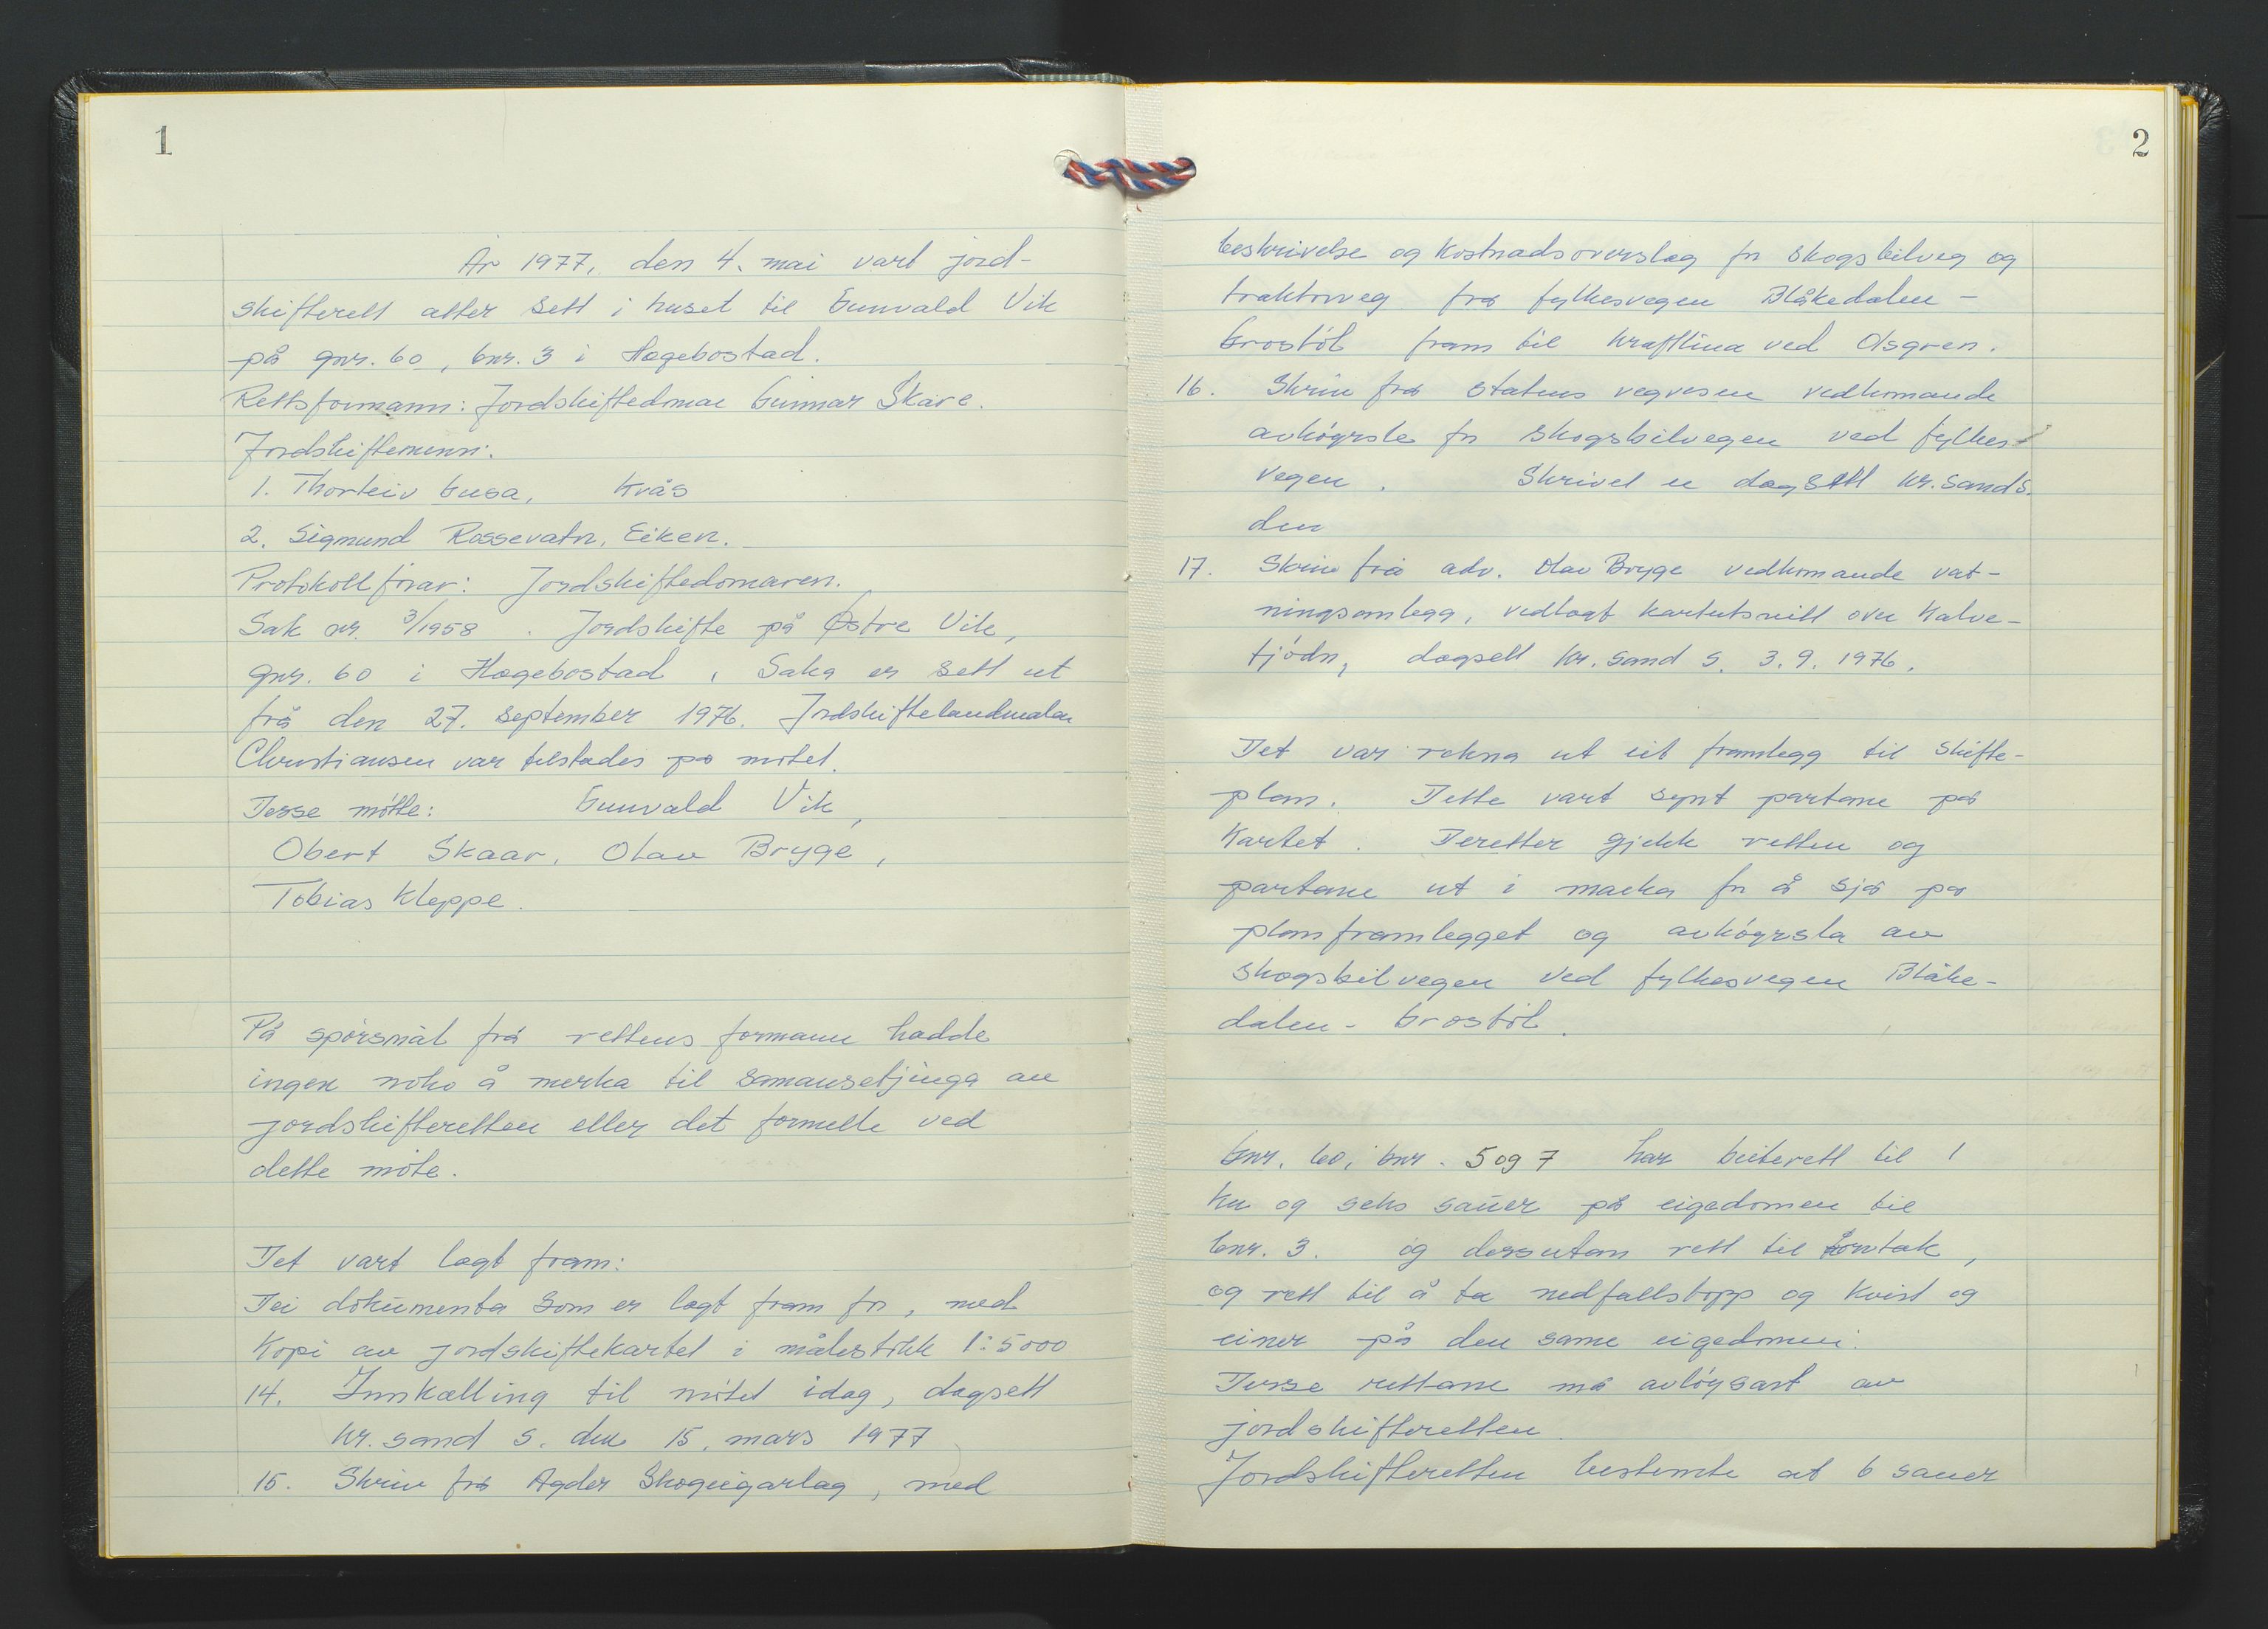 1
År 1977, den 4. mai vart jord-
skifterett atter sett i huset til Gunvald Vik
på gnr. 60, bnr. 3 i Hægebostad.
Rettsformann: Jordskiftedomar Gunnar Skåre.
Jordskiftemenn:
1. Thorleiv Gusa, Kvås
2. Sigmund Rossevatn, Eiken.
Protokollførar: Jordskiftedomaren.
Sak nr. 3/1958. Jordskifte på Østre Vik,
gnr. 60 i Hægebostad, Saka er sett ut
frå den 27. september 1976. Jordskiftelandmålar
Christiansen var tilstades på møtet.
Desse møtte: Gunvald Vik,
Obert Skaar, Olav Bryge,
Tobias Kleppe.
På spørsmål frå rettens formann hadde
ingen noko å merka til samansetjinga av
jordskifteretten eller det formelle ved
dette møte.
Det vart lagt fram:
Dei dokumenta som er lagt fram før, med
kopi av jordskiftekartet i målestokk 1:5000
14. Innkalling til møtet idag, dagsett
Kr.sand S. den 15. mars 1977
15. Skriv frå Agder Skogeigarlag, med
2
beskrivelse og kostnadsoverslag for skogsbilveg og
traktorveg frå fylkesvegen Blåkedalen -
Grostøl fram til kraftlina ved Osgren.
16. Skriv frå statens vegvesen vedkomande
avkøyrsle for skogsbilvegen ved fylkes-
vegen. Skrivet er dagsett Kr.sand S.
den
17. Skriv frå adv. Olav Bryge vedkomande vat-
ningsanlegg, vedlagt kartutsnitt over Kalve-
tjødn, dagsett Kr.sand S. 3.9.1976.
Det var rekna ut eit framlegg til skifte-
plan. Dette vart synt partane på
kartet. Deretter gjekk retten og
partane ut i marka for å sjå på
planframlegget og avkøyrsla av
skogsbilvegen ved fylkesvegen Blåke-
dalen - Grostøl.
Gnr. 60, bnr. 5 og 7 har beiterett til 1
ku og seks sauer på eigedomen til
bnr. 3. og dessutan rett til
og rett til å ta nedfallstopp og kvist og
einer på den same eigedomen.
Desse rettane må avløysast av
jordskifteretten.
Jordskifteretten bestemte at 6 sauer